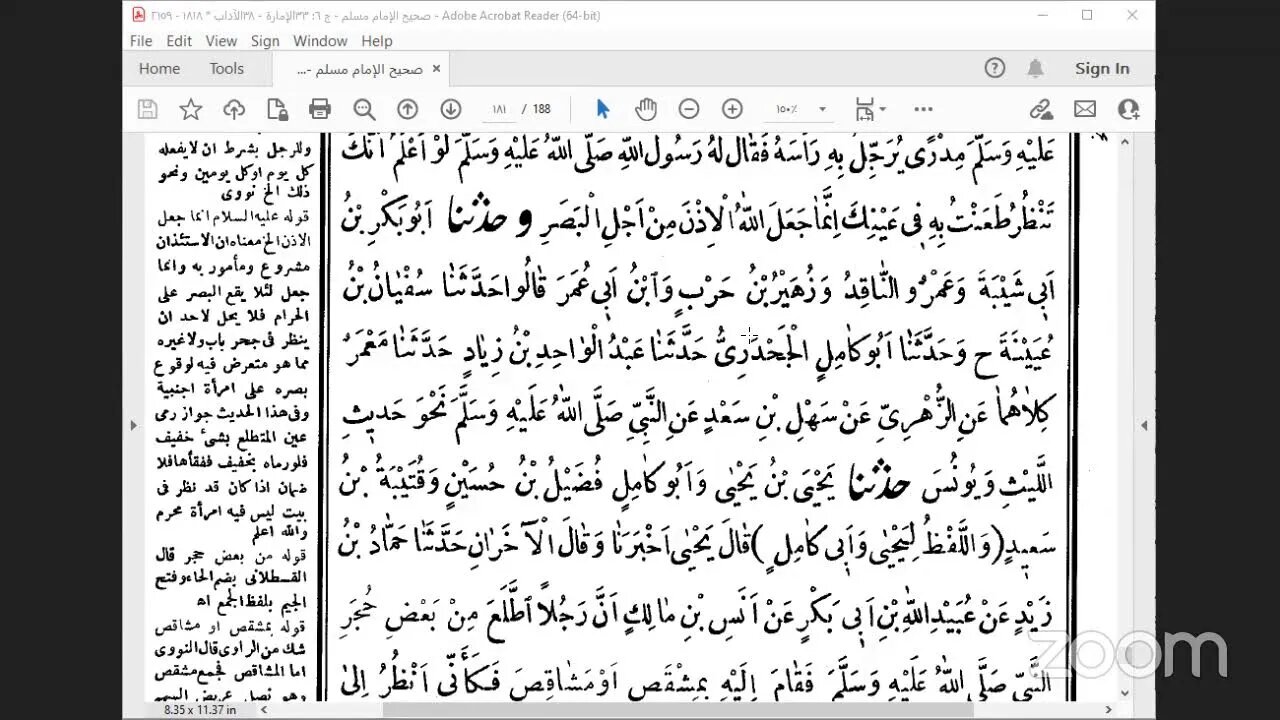 صحيح الإمام مسلم - ج ٦: ٣٣الإمارة - ٣٨الآداب * ١٨١٨ - ٢١٥٩ - Adobe Acrobat Reader (64-bit)
File Edit View Sign Window Help
Home Tools صحيح الإمام مسلم -... × Sign In
١٨١ / 188 ١٥٠٪
عَلَيْهِ وَسَلَّمَ مِدْرًى يُرَجِّلُ بِهِ رَأْسَهُ فَقَالَ لَهُ رَسُولُ اللّٰهِ صَلَّى اللّٰهُ عَلَيْهِ وَسَلَّمَ لَوْ أَعْلَمُ أَنَّكَ
تَنْظُرُ طَعَنْتُ بِهِ فِى عَيْنِكَ اِنَّمَا جَعَلَ اللّٰهُ الْاِذْنَ مِنْ اَجْلِ الْبَصَرِ و حدثنا اَبُو بَكْرِ بْنُ
اَبِى شَيْبَةَ وَعَمْرٌو النَّاقِدُ وَزُهَيْرُ بْنُ حَرْبٍ وَابْنُ اَبِى عُمَرَ قَالُوا حَدَّثَنَا سُفْيَانُ بْنُ
عُيَيْنَةَ ح وَحَدَّثَنَا اَبُو كَامِلٍ الْجَحْدَرِىُّ حَدَّثَنَا عَبْدُ الْوَاحِدِ بْنُ زِيَادٍ حَدَّثَنَا مَعْمَرٌ
كِلَاهُمَا عَنِ الزُّهْرِىِّ عَنْ سَهْلِ بْنِ سَعْدٍ عَنِ النَّبِىِّ صَلَّى اللّٰهُ عَلَيْهِ وَسَلَّمَ نَحْوَ حَدِيثِ
اللَّيْثِ وَيُونُسَ حدثنا يَحْيَى بْنُ يَحْيٰى وَاَبُو كَامِلٍ فُضَيْلُ بْنُ حُسَيْنٍ وَقُتَيْبَةُ بْنُ
سَعِيدٍ (وَاللَّفْظُ لِيَحْيٰى وَاَبِى كَامِلٍ) قَالَ يَحْيٰى اَخْبَرَنَا وَقَالَ الْآخَرَانِ حَدَّثَنَا حَمَّادُ بْنُ
زَيْدٍ عَنْ عُبَيْدِ اللّٰهِ بْنِ اَبِى بَكْرٍ عَنْ اَنَسِ بْنِ مَالِكٍ اَنَّ رَجُلًا اَطَّلَعَ مِنْ بَعْضِ حُجَرِ
النَّبِىِّ صَلَّى اللّٰهُ عَلَيْهِ وَسَلَّمَ فَقَامَ اِلَيْهِ بِمِشْقَصٍ اَوْ مَشَاقِصَ فَكَأَنِّى اَنْظُرُ اِلٰى
وللرجل بشرط ان لايفعله
كل يوم اوكل يومين ونحو
ذلك الخ نووى
قوله عليه السلام انما جعل
الاذن الخ معناه ان الاستئذان
مشروع ومأمور به وانما
جعل لئلا يقع البصر على
الحرام فلا يحل لاحد ان
ينظر فى جحر باب ولاغيره
مما هو متعرض فيه لوقوع
بصره على امرأة اجنبية
وفى هذا الحديث جواز رمى
عين المتطلع بشىء خفيف
فلورماه بخفيف ففقأها فلا
ضمان اذا كان قد نظر فى
بيت ليس فيه امرأة محرم
والله اعلم
قوله من بعض حجر قال
القسطلانى بضم الحاء وفتح
الجيم بلفظ الجمع اه
قوله بمشقص او مشاقص
شك من الراوى قال النووى
اما المشاقص فجمع مشقص
وهو نصل عريض السهم
8.35 x 11.37 in
zoom